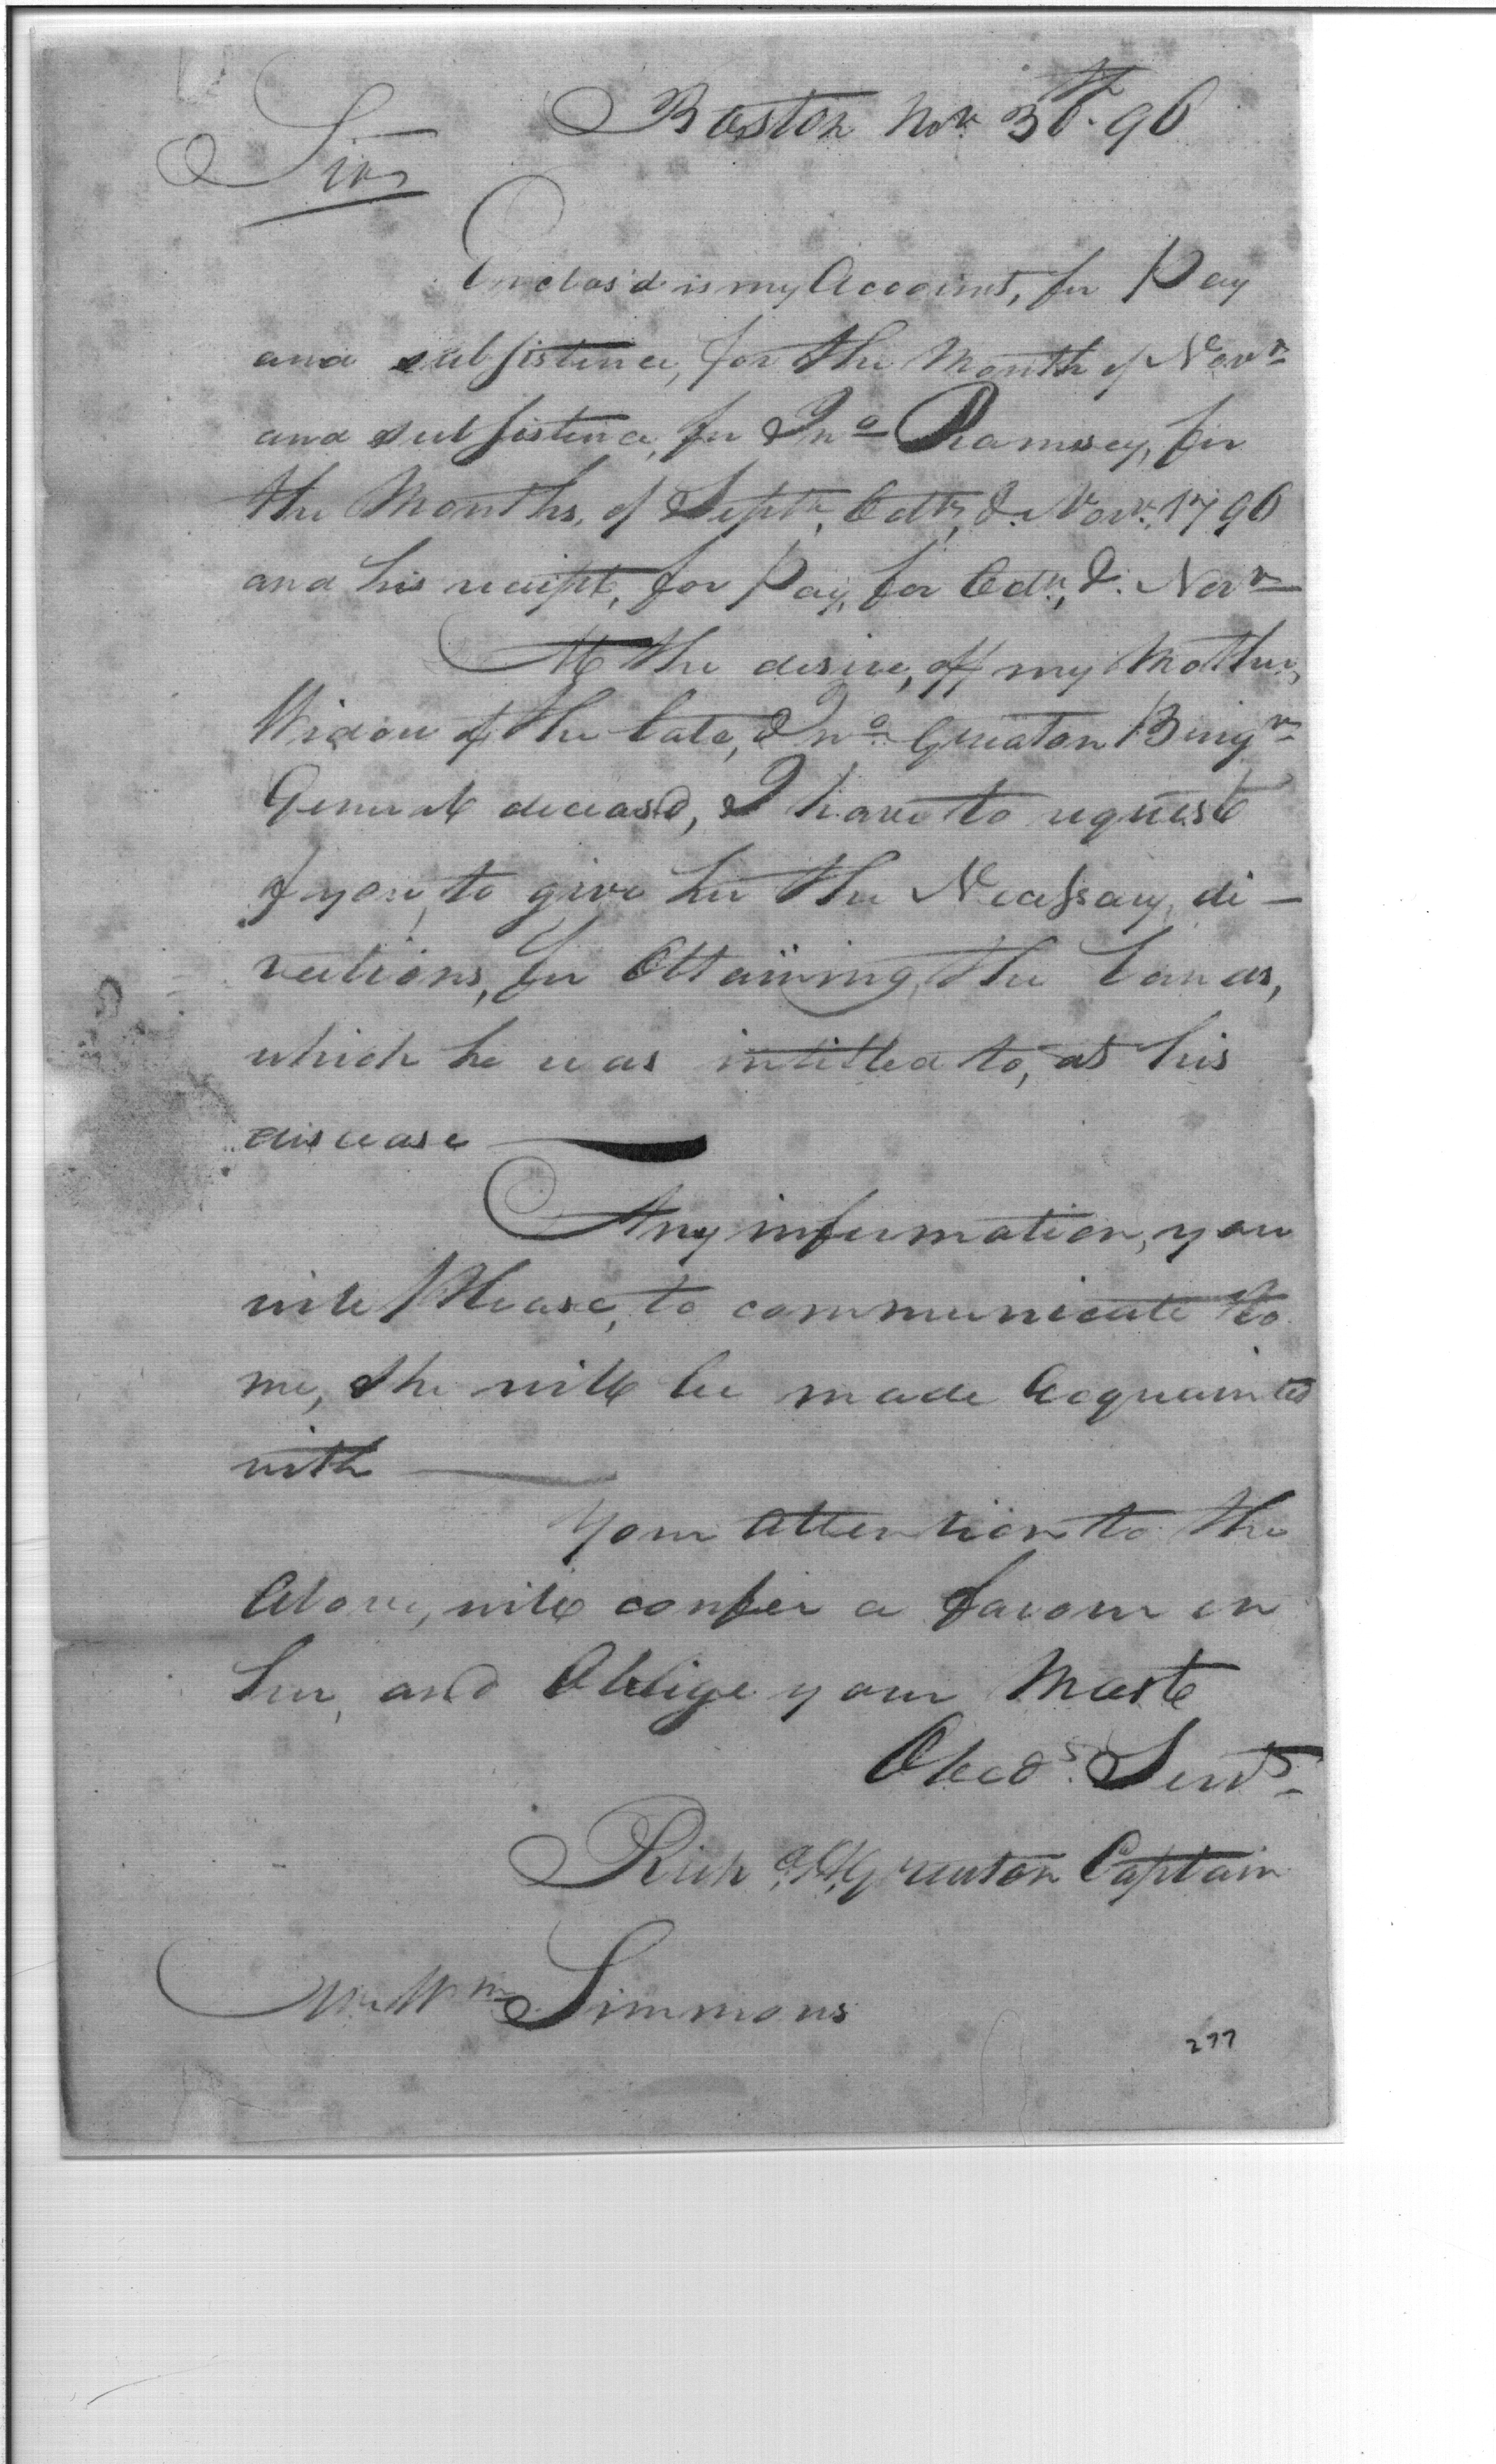 Boston Novr. 30th. 96
Sir,
Enclos'd is my Account, for Pay
and subsistence, for the Month of Novr
and subsistence, for Jno Ramsey, for
the Months, of Septr, Octr, & Novr. 1796
and his receipt, for Pay, for Octr, & Novr
At the desire, off my Mother,
Widow of the late, Jno Greaton Brigr
General deceasd, I have to request
of you, to give her the Necessary, di-
rections, for Obtaining, the Lands,
which he was intitled to, at his
disease
Any information, you
will Please, to communicate to
me, she will be made Acquainted
with
Your attention to the
Above, will confer a favour on
her, and Oblige your Most
Obeds. Servt
Richd. H. Greaton Captain
Mr Wm Simmons
277